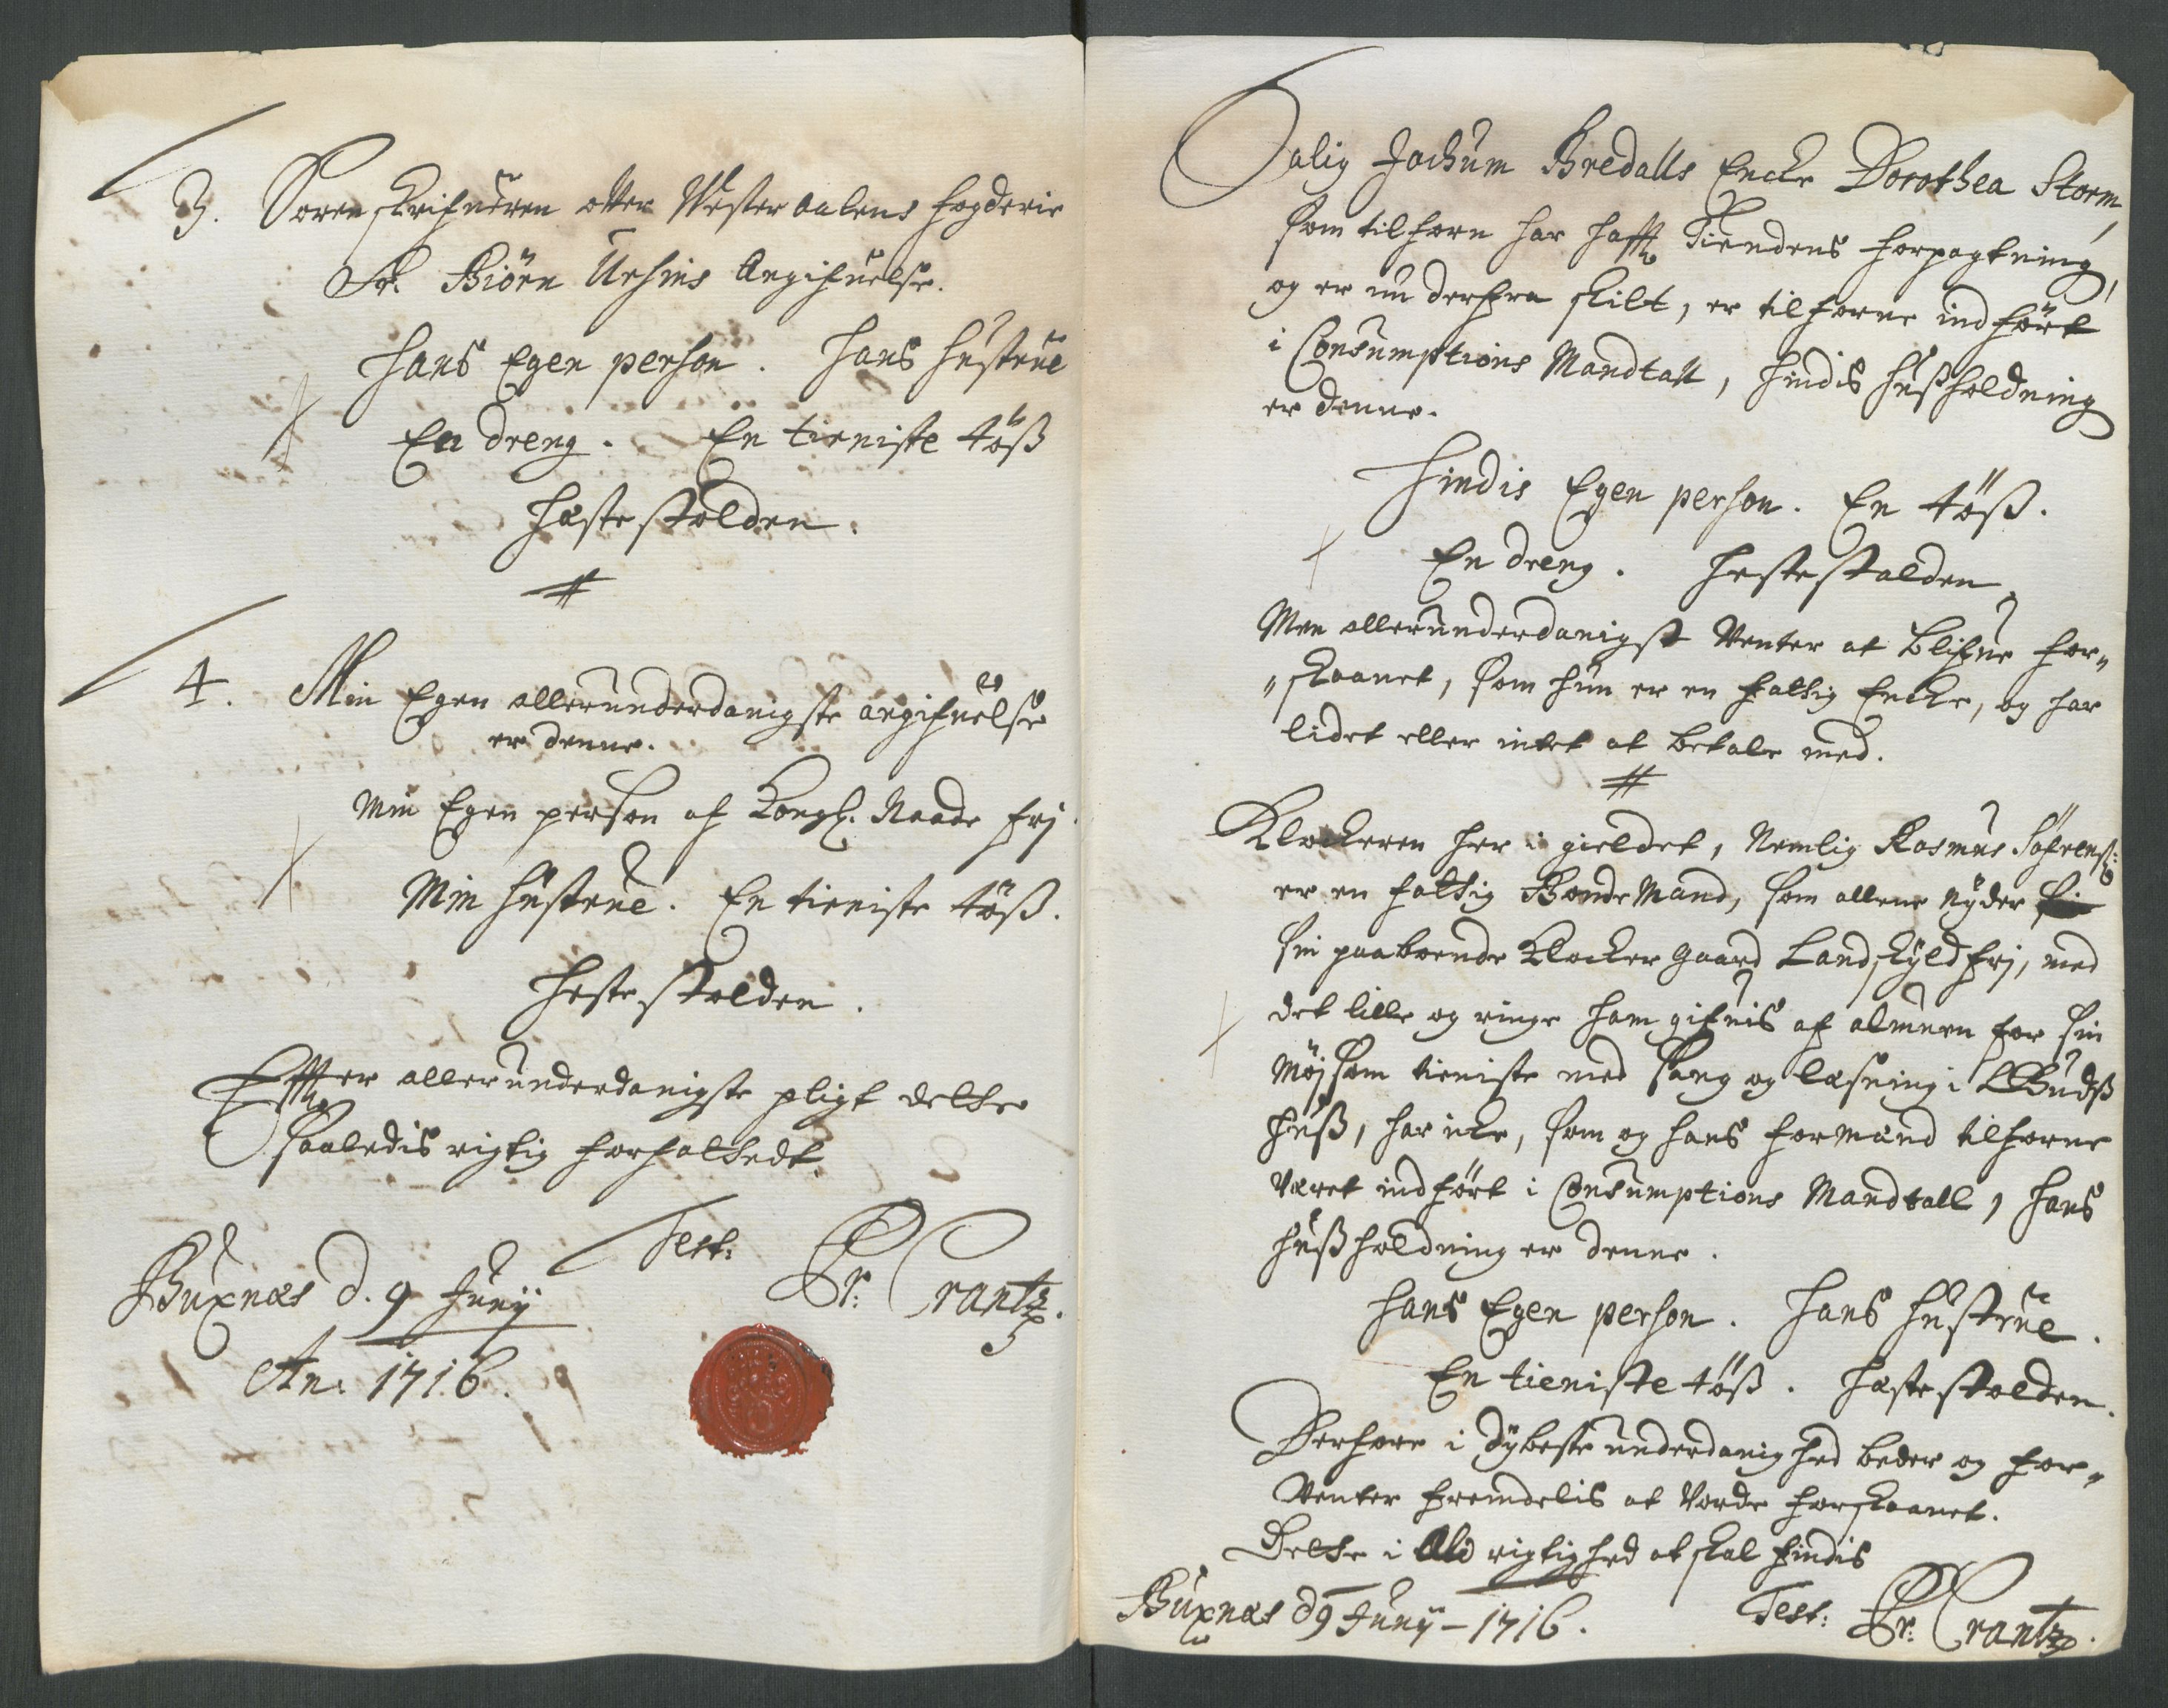 3. Sorenskrifueren offuer Wester aalens fogderie
Sr. Biörn Ursins Angifuelse.
Hans Egen person. Hans Hustrue
En dreng. En tieniste töß
Hæste skolden.
4. Min Egen allerunderdanigste angifuelse
er denne.
Min Egen person af Kongl. Naade frj.
Min Hustrue. En tieniste töß.
Heste skolden.
Effter allerunderdanigste pligt dette
saaledis rigtig forfattedt.
Buxnæs d. 9 Junij
Test: Pr: Crantz.
An: 1716.
Salig Jochum Bredalls Encke Dorothea Storm,
som tilforn har hafft Tiendens forpagtning,
og er nu derfra skilt, er tilforne indfört
i Consumptions Mandtall, Hindis Hußholdning
er denne.
Hindis Egen person. En töß.
En dreng. Heste skolden
Men allerunderdanigst Venter at blifue for„
„skaanet, som hun er en fattig Encke, og har
lidet eller intet at betale med.
Klockeren her i gieldet, Nemlig Rasmus Söfrenß:
er en fattig Bonde Mand, som allene nyder
sin paaboende Klocker gaard Landskyld frj, med
det lille og ringe ham gifuis af almuen for sin
Möjsom tieniste med sang og læsning i Gudß
Huß, har icke, som og hans formand tilforne
Været indfört i Consumptions Mandtall, Hans
Hußholdning er denne.
Hans Egen person. Hans Hustrue.
En tieniste töß. Hæste skolden.
Derfore i dybeste underdanighed beder og for„
Venter fremdelis at Vorde forskaanet.
Dette i Ald rigtighed at skal findis
Buxnæs d 9 Junij – 1716.
Test: Pr: Crantz.